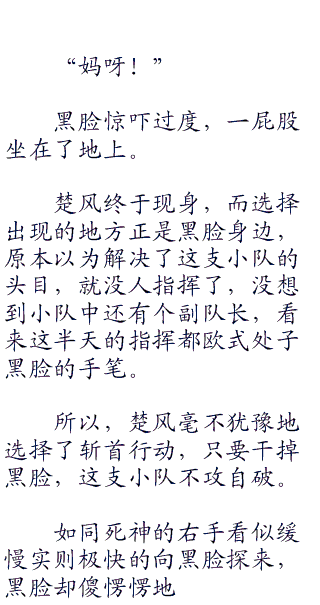 “妈呀！”
黑脸惊吓过度，一屁股
坐在了地上。
楚风终于现身，而选择
出现的地方正是黑脸身边，
原本以为解决了这支小队的
头目，就没人指挥了，没想
到小队中还有个副队长，看
来这半天的指挥都欧式处子
黑脸的手笔。
所以，楚风毫不犹豫地
选择了斩首行动，只要干掉
黑脸，这支小队不攻自破。
如同死神的右手看似缓
慢实则极快的向黑脸探来，
黑脸却傻愣愣地